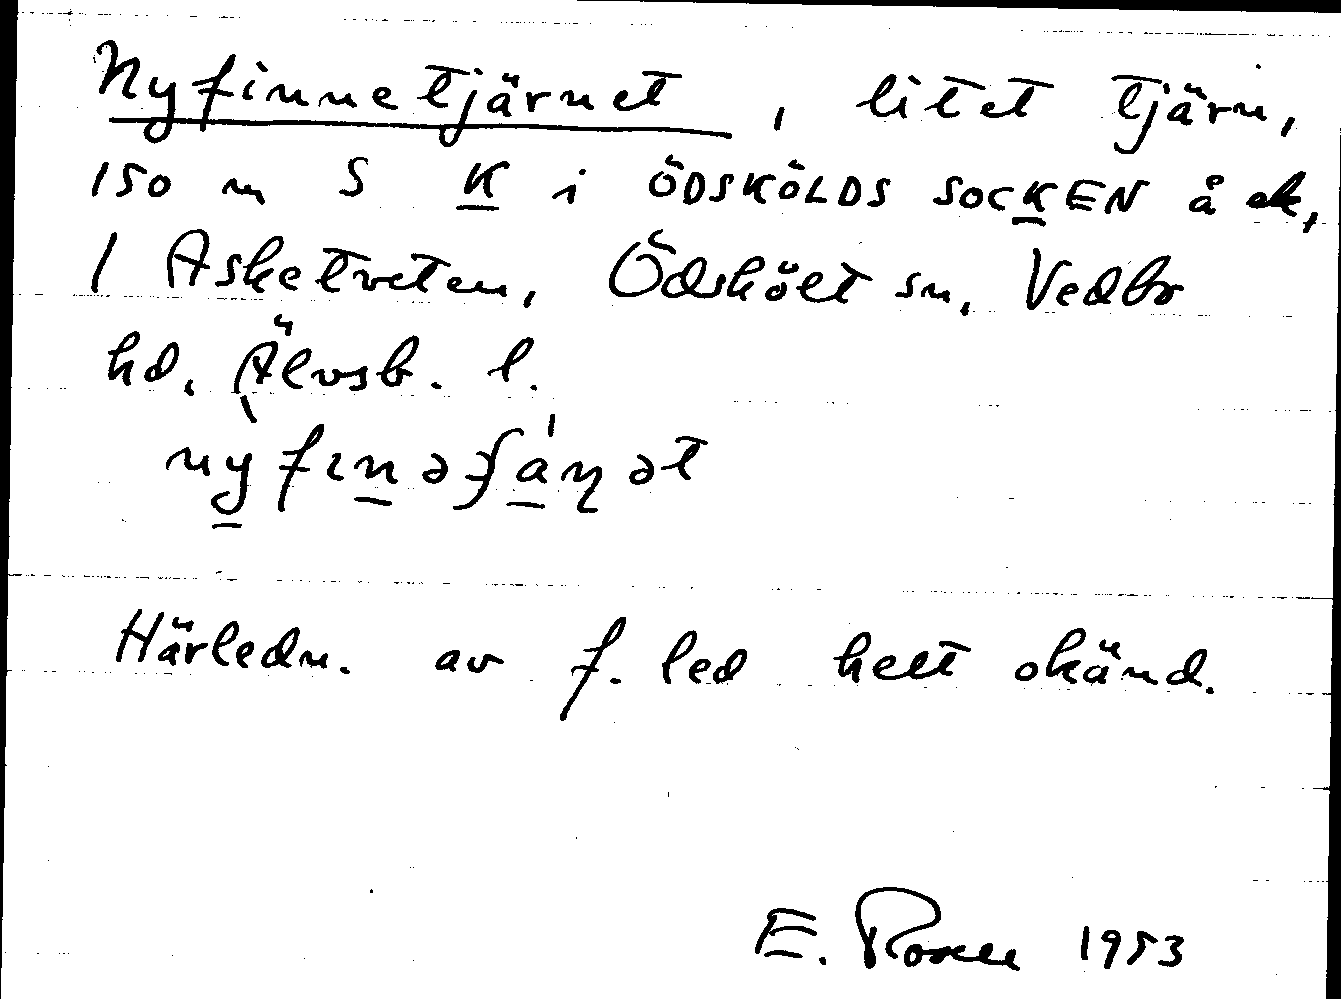 Nyfinnetjärnet, litet tjärn,
150 m S K i ÖDSKÖLDS SOCKEN å ek,
1 Asketveten, Ödskölt sn, Vedbo
hd. Älvsb. l.
Härledn. av f. led helt okänd.
E. Rosell 1953